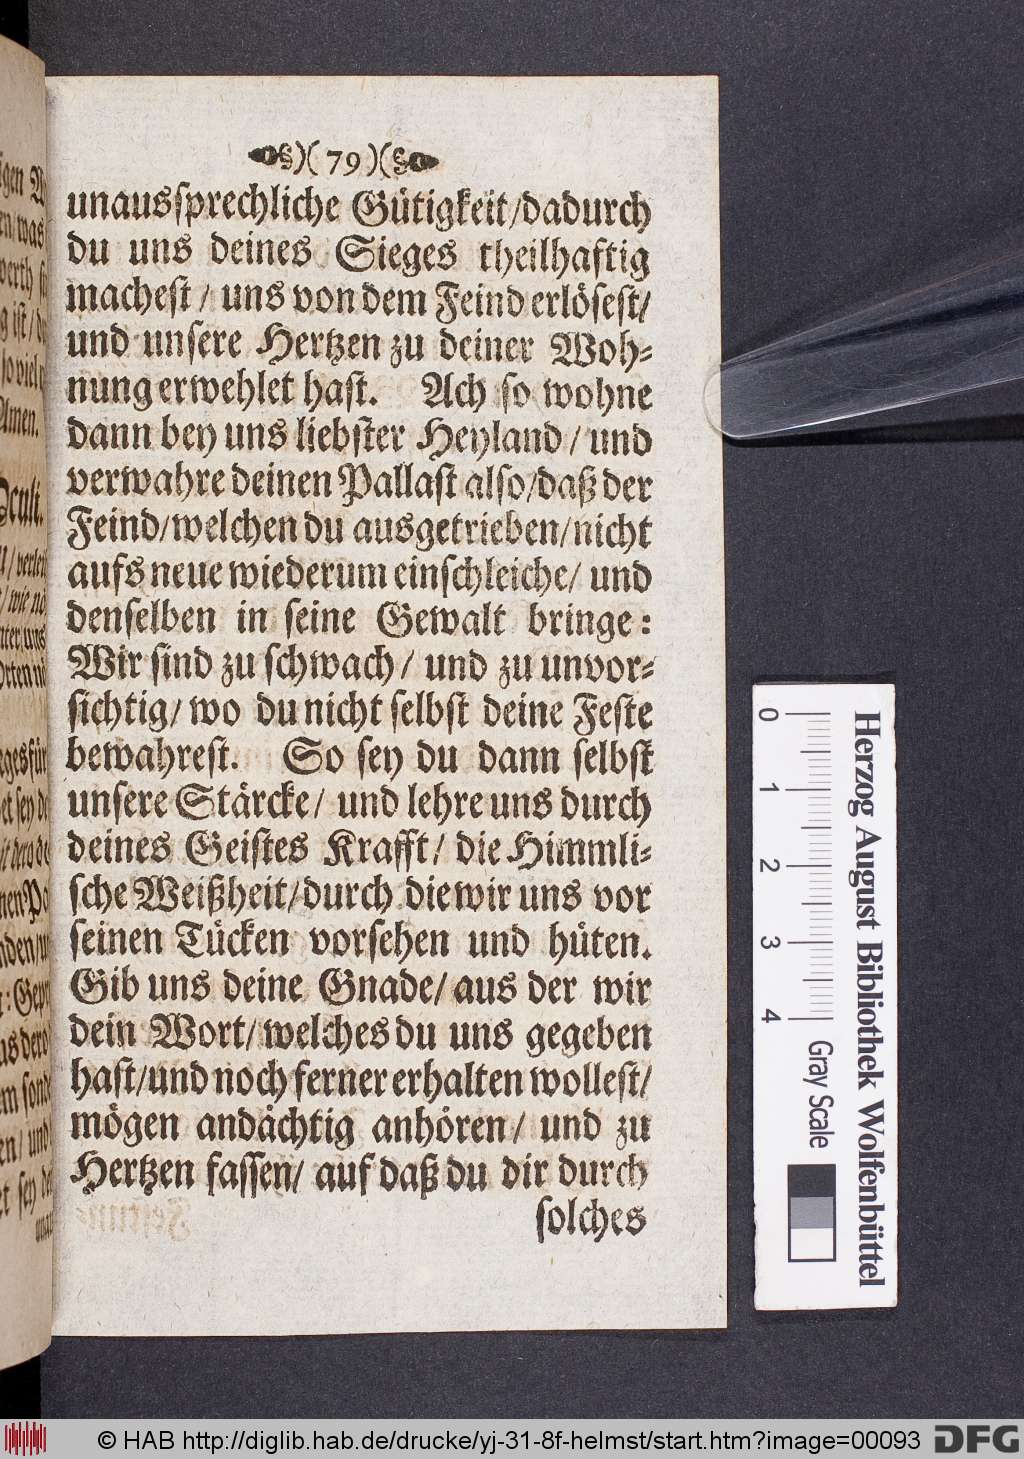 )( 79 )(
unausſprechliche Gütigkeit/dadurch
du uns deines Sieges theilhaftig
macheſt / uns von dem Feind erlöſeſt/
und unſere Hertzen zu deiner Woh-
nung erwehlet haſt. Ach ſo wohne
dann bey uns liebſter Heyland / und
verwahre deinen Pallaſt alſo/daß der
Feind/welchen du ausgetrieben/nicht
aufs neue wiederum einſchleiche/ und
denſelben in ſeine Gewalt bringe:
Wir ſind zu ſchwach/ und zu unvor-
ſichtig/ wo du nicht ſelbſt deine Feſte
bewahreſt. So ſey du dann ſelbſt
unſere Stärcke/ und lehre uns durch
deines Geiſtes Krafft/ die Himmli-
ſche Weißheit/durch die wir uns vor
ſeinen Tücken vorſehen und hüten.
Gib uns deine Gnade/ aus der wir
dein Wort/ welches du uns gegeben
haſt/und noch ferner erhalten wolleſt/
mögen andächtig anhören/ und zu
Hertzen faſſen/ auf daß du dir durch
ſolches
Herzog August Bibliothek Wolfenbüttel
0 1 2 3 4 Gray Scale
© HAB http://diglib.hab.de/drucke/yj-31-8f-helmst/start.htm?image=00093
DFG